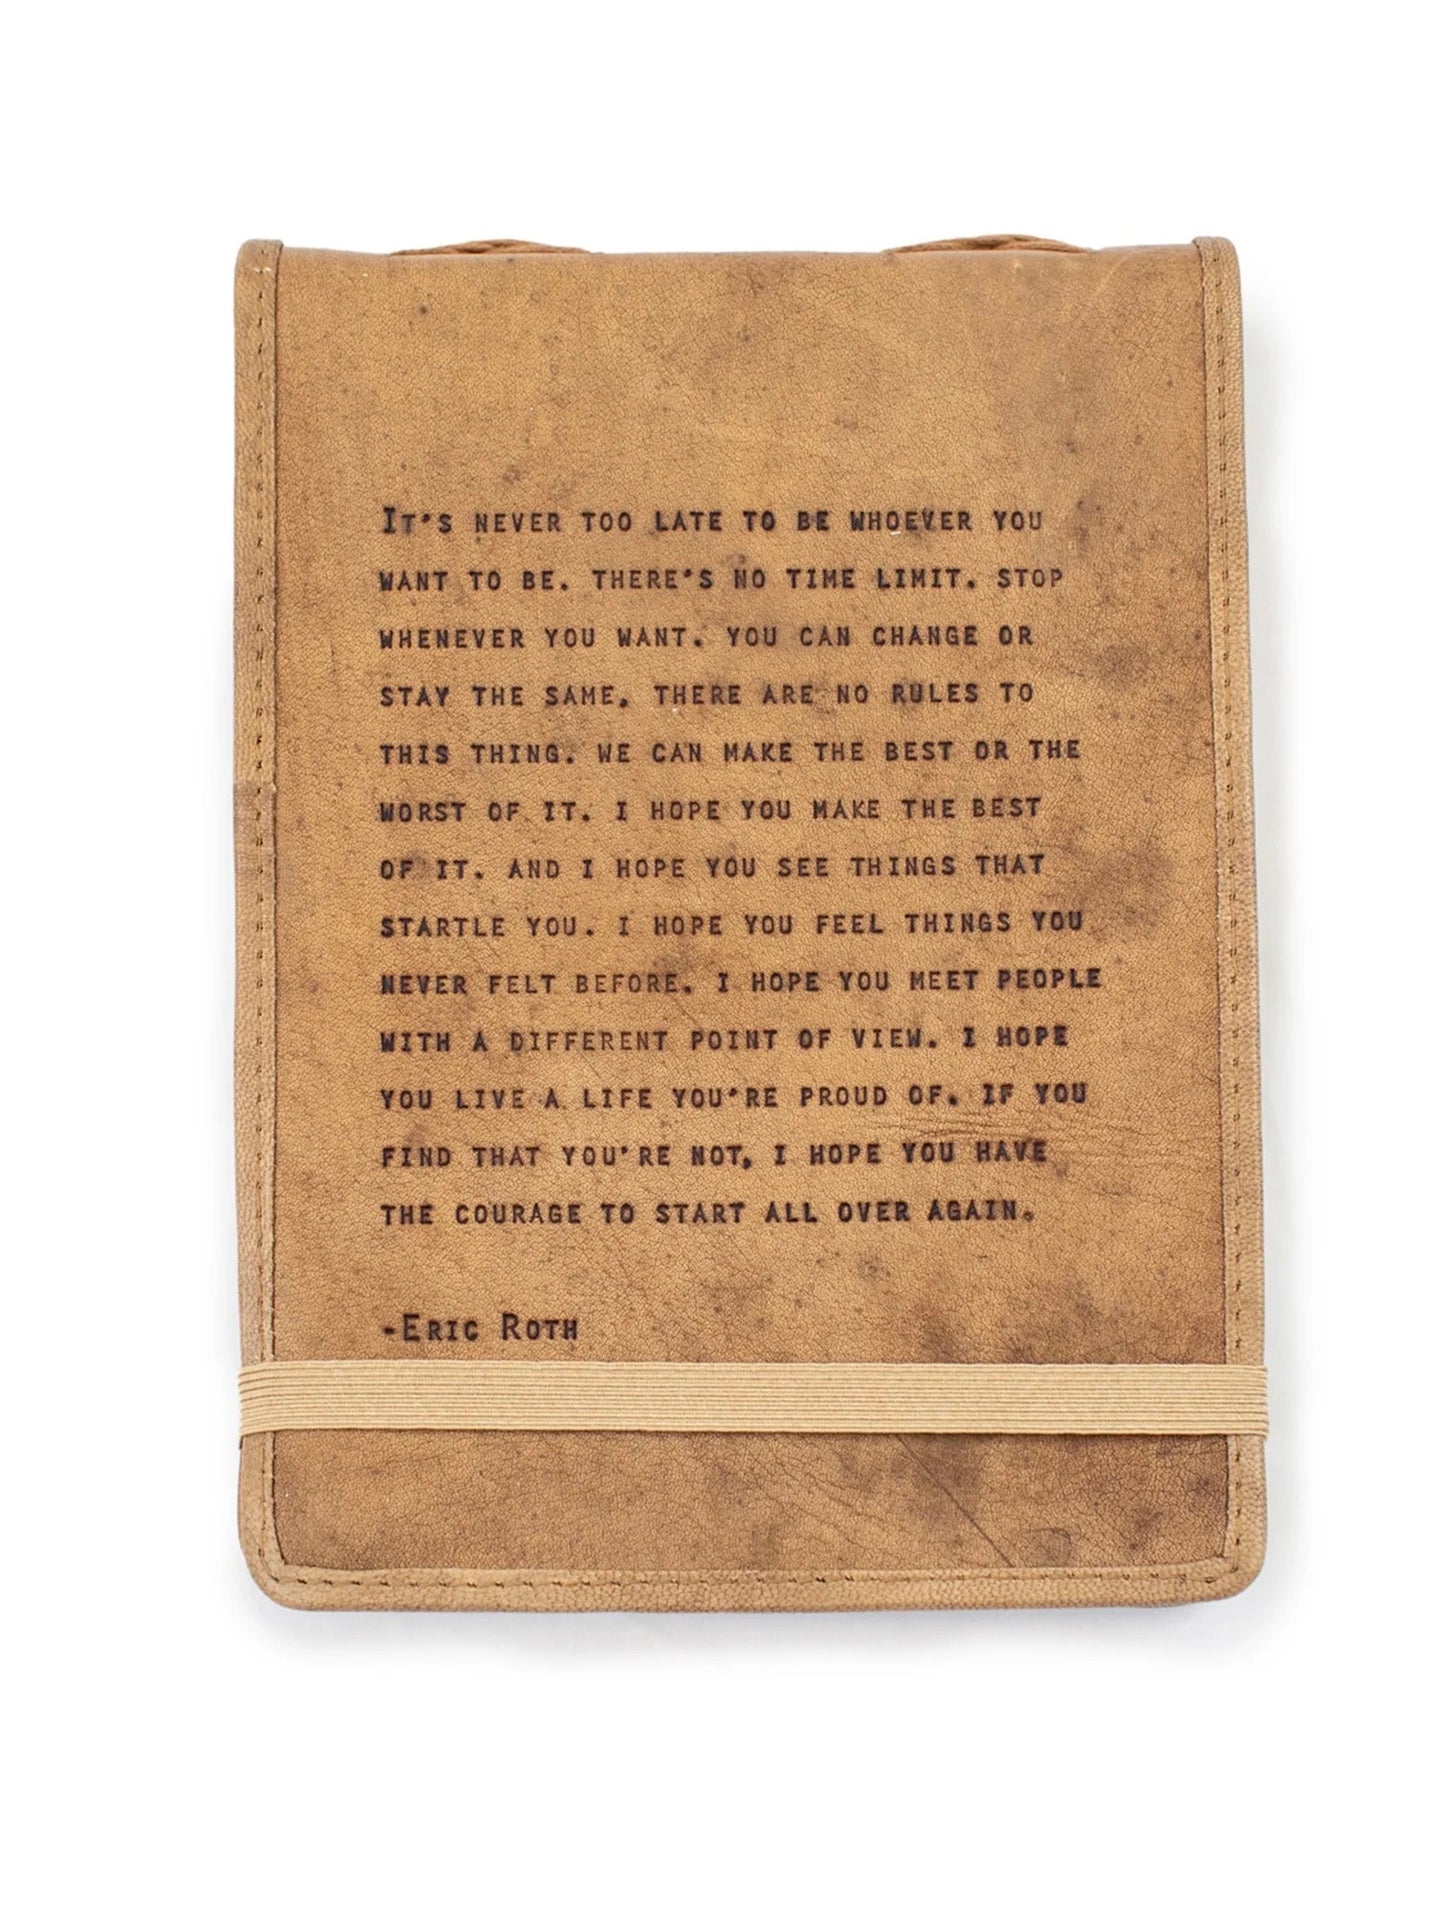 It's never too late to be whoever you
want to be. There's no time limit. Stop
whenever you want. You can change or
stay the same, there are no rules to
this thing. We can make the best or the
worst of it. I hope you make the best
of it. And I hope you see things that
startle you. I hope you feel things you
never felt before. I hope you meet people
with a different point of view. I hope
you live a life you're proud of. If you
find that you're not, I hope you have
the courage to start all over again.
-Eric Roth